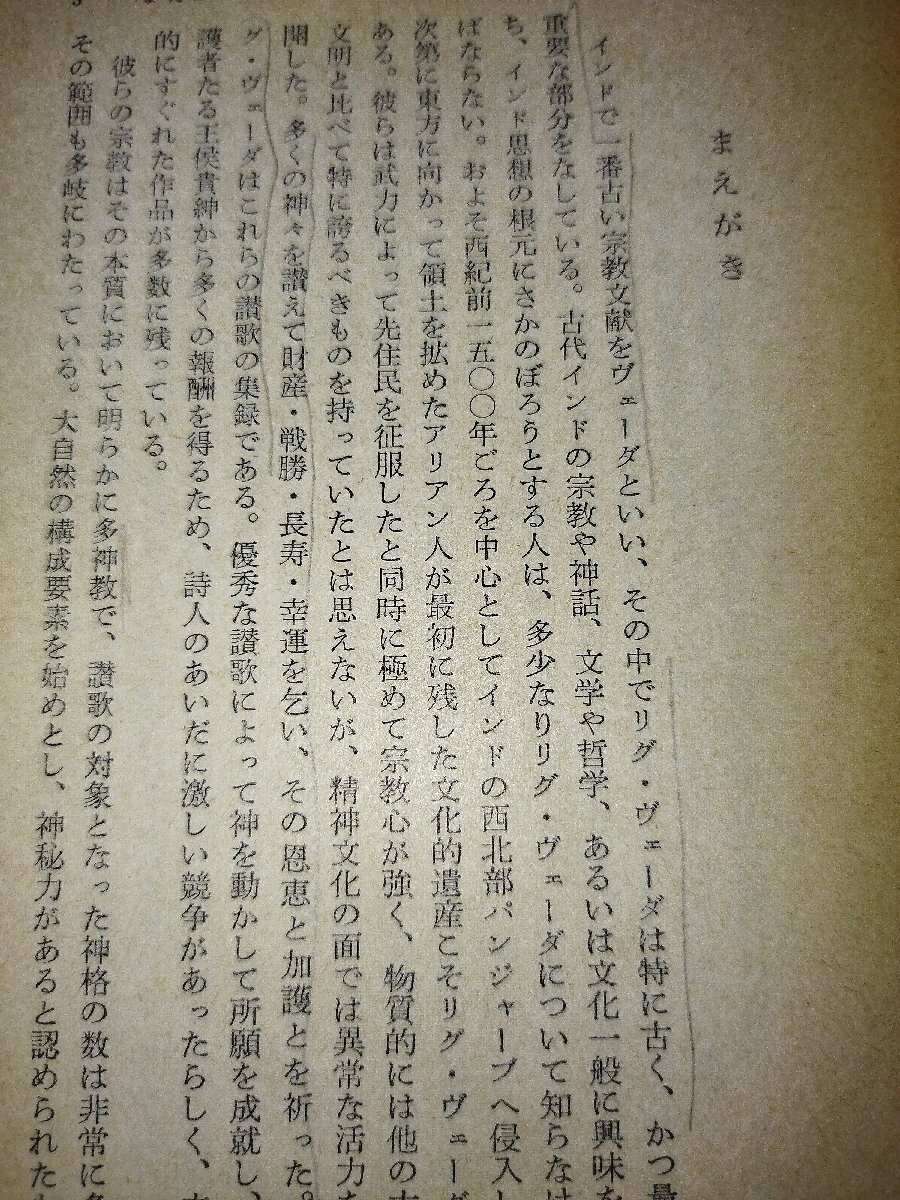 まえがき
インドで一番古い宗教文献をヴェーダといい、その中でリグ・ヴェーダは特に古く、かつ最
重要な部分をなしている。古代インドの宗教や神話、文学や哲学、あるいは文化一般に興味を
ち、インド思想の根元にさかのぼろうとする人は、多少なりリグ・ヴェーダについて知らなけ
ばならない。およそ西紀前一五〇〇年ごろを中心としてインドの西北部パンジャーブへ侵入し
次第に東方に向かって領土を拡めたアリアン人が最初に残した文化的遺産こそリグ・ヴェーダ
ある。彼らは武力によって先住民を征服したと同時に極めて宗教心が強く、物質的には他の古
文明と比べて特に誇るべきものを持っていたとは思えないが、精神文化の面では異常な活力を
開した。多くの神々を讃えて財産・戦勝・長寿・幸運を乞い、その恩恵と加護とを祈った。
グ・ヴェーダはこれらの讃歌の集録である。優秀な讃歌によって神を動かして所願を成就し、
護者たる王侯貴紳から多くの報酬を得るため、詩人のあいだに激しい競争があったらしく、
的にすぐれた作品が多数に残っている。
彼らの宗教はその本質において明らかに多神教で、讃歌の対象となった神格の数は非常に多
その範囲も多岐にわたっている。大自然の構成要素を始めとし、神秘力があると認められた